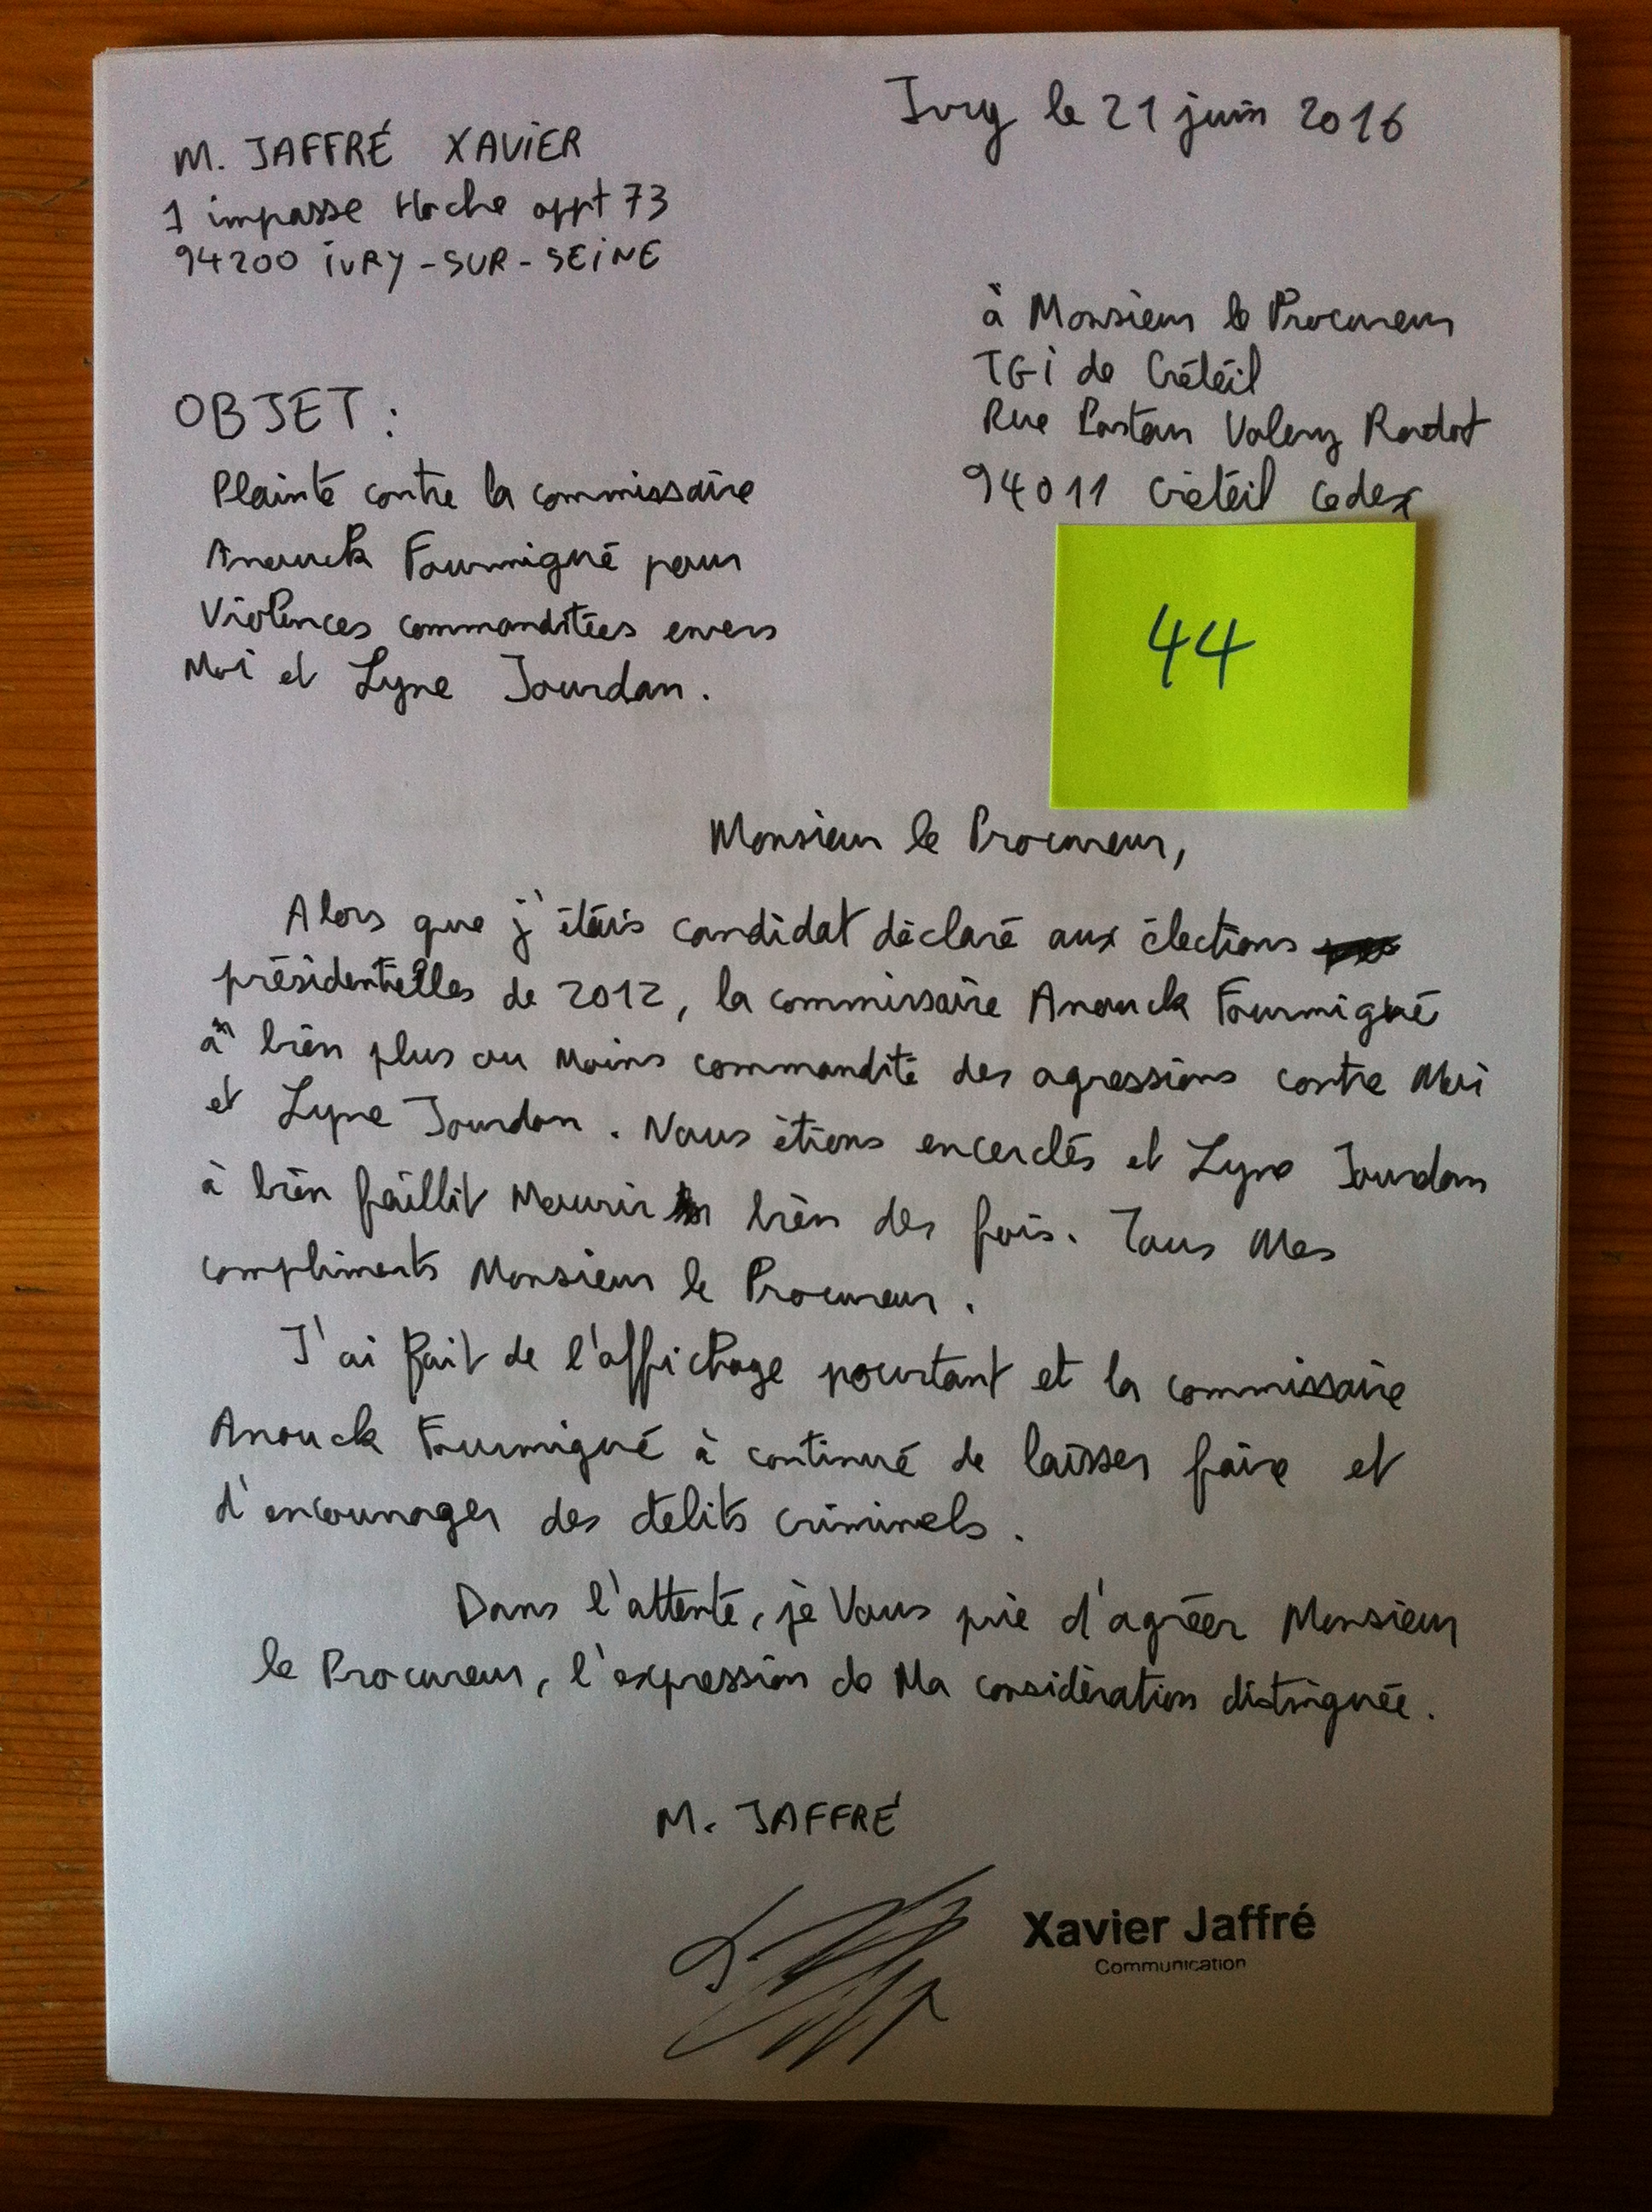 Ivry le 21 juin 2016
M. JAFFRÉ XAVIER
1 impasse Hoche appt 73
94200 IVRY-SUR-SEINE
à Monsieur le Procureur
TGI de Créteil
Rue Pasteur Valery Radot
94011 Créteil Cedex
OBJET :
Plainte contre la commissaire
Anouck Fourmigué pour
Violences commanditées envers
Moi et Lyne Jourdan.
44
Monsieur le Procureur,
Alors que j'étais candidat déclaré aux élections
présidentielles de 2012, la commissaire Anouck Fourmigué
à bien plus ou moins commandité des agressions contre Moi
et Lyne Jourdan. Nous étions encerclés et Lyne Jourdan
à bien faillit Mourir bien des fois. Tous Mes
compliments Monsieur le Procureur.
J'ai fait de l'affichage pourtant et la commissaire
Anouck Fourmigué à continué de laisser faire et
d'encourager des délits criminels.
Dans l'attente, je Vous prie d'agréer Monsieur
le Procureur, l'expression de Ma considération distinguée.
M. JAFFRÉ
Xavier Jaffré
Communication